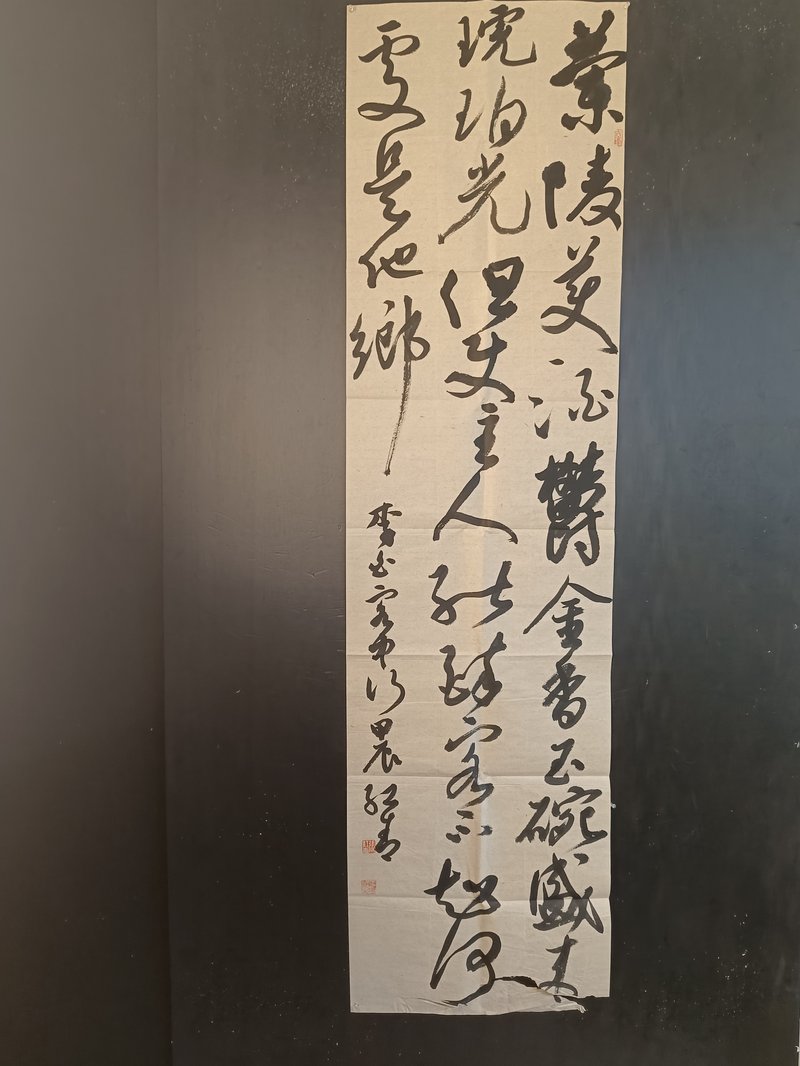 蘭陵美酒鬱金香玉碗盛来
琥珀光但使主人能醉客不知何
處是他鄉
李白客中行甲辰